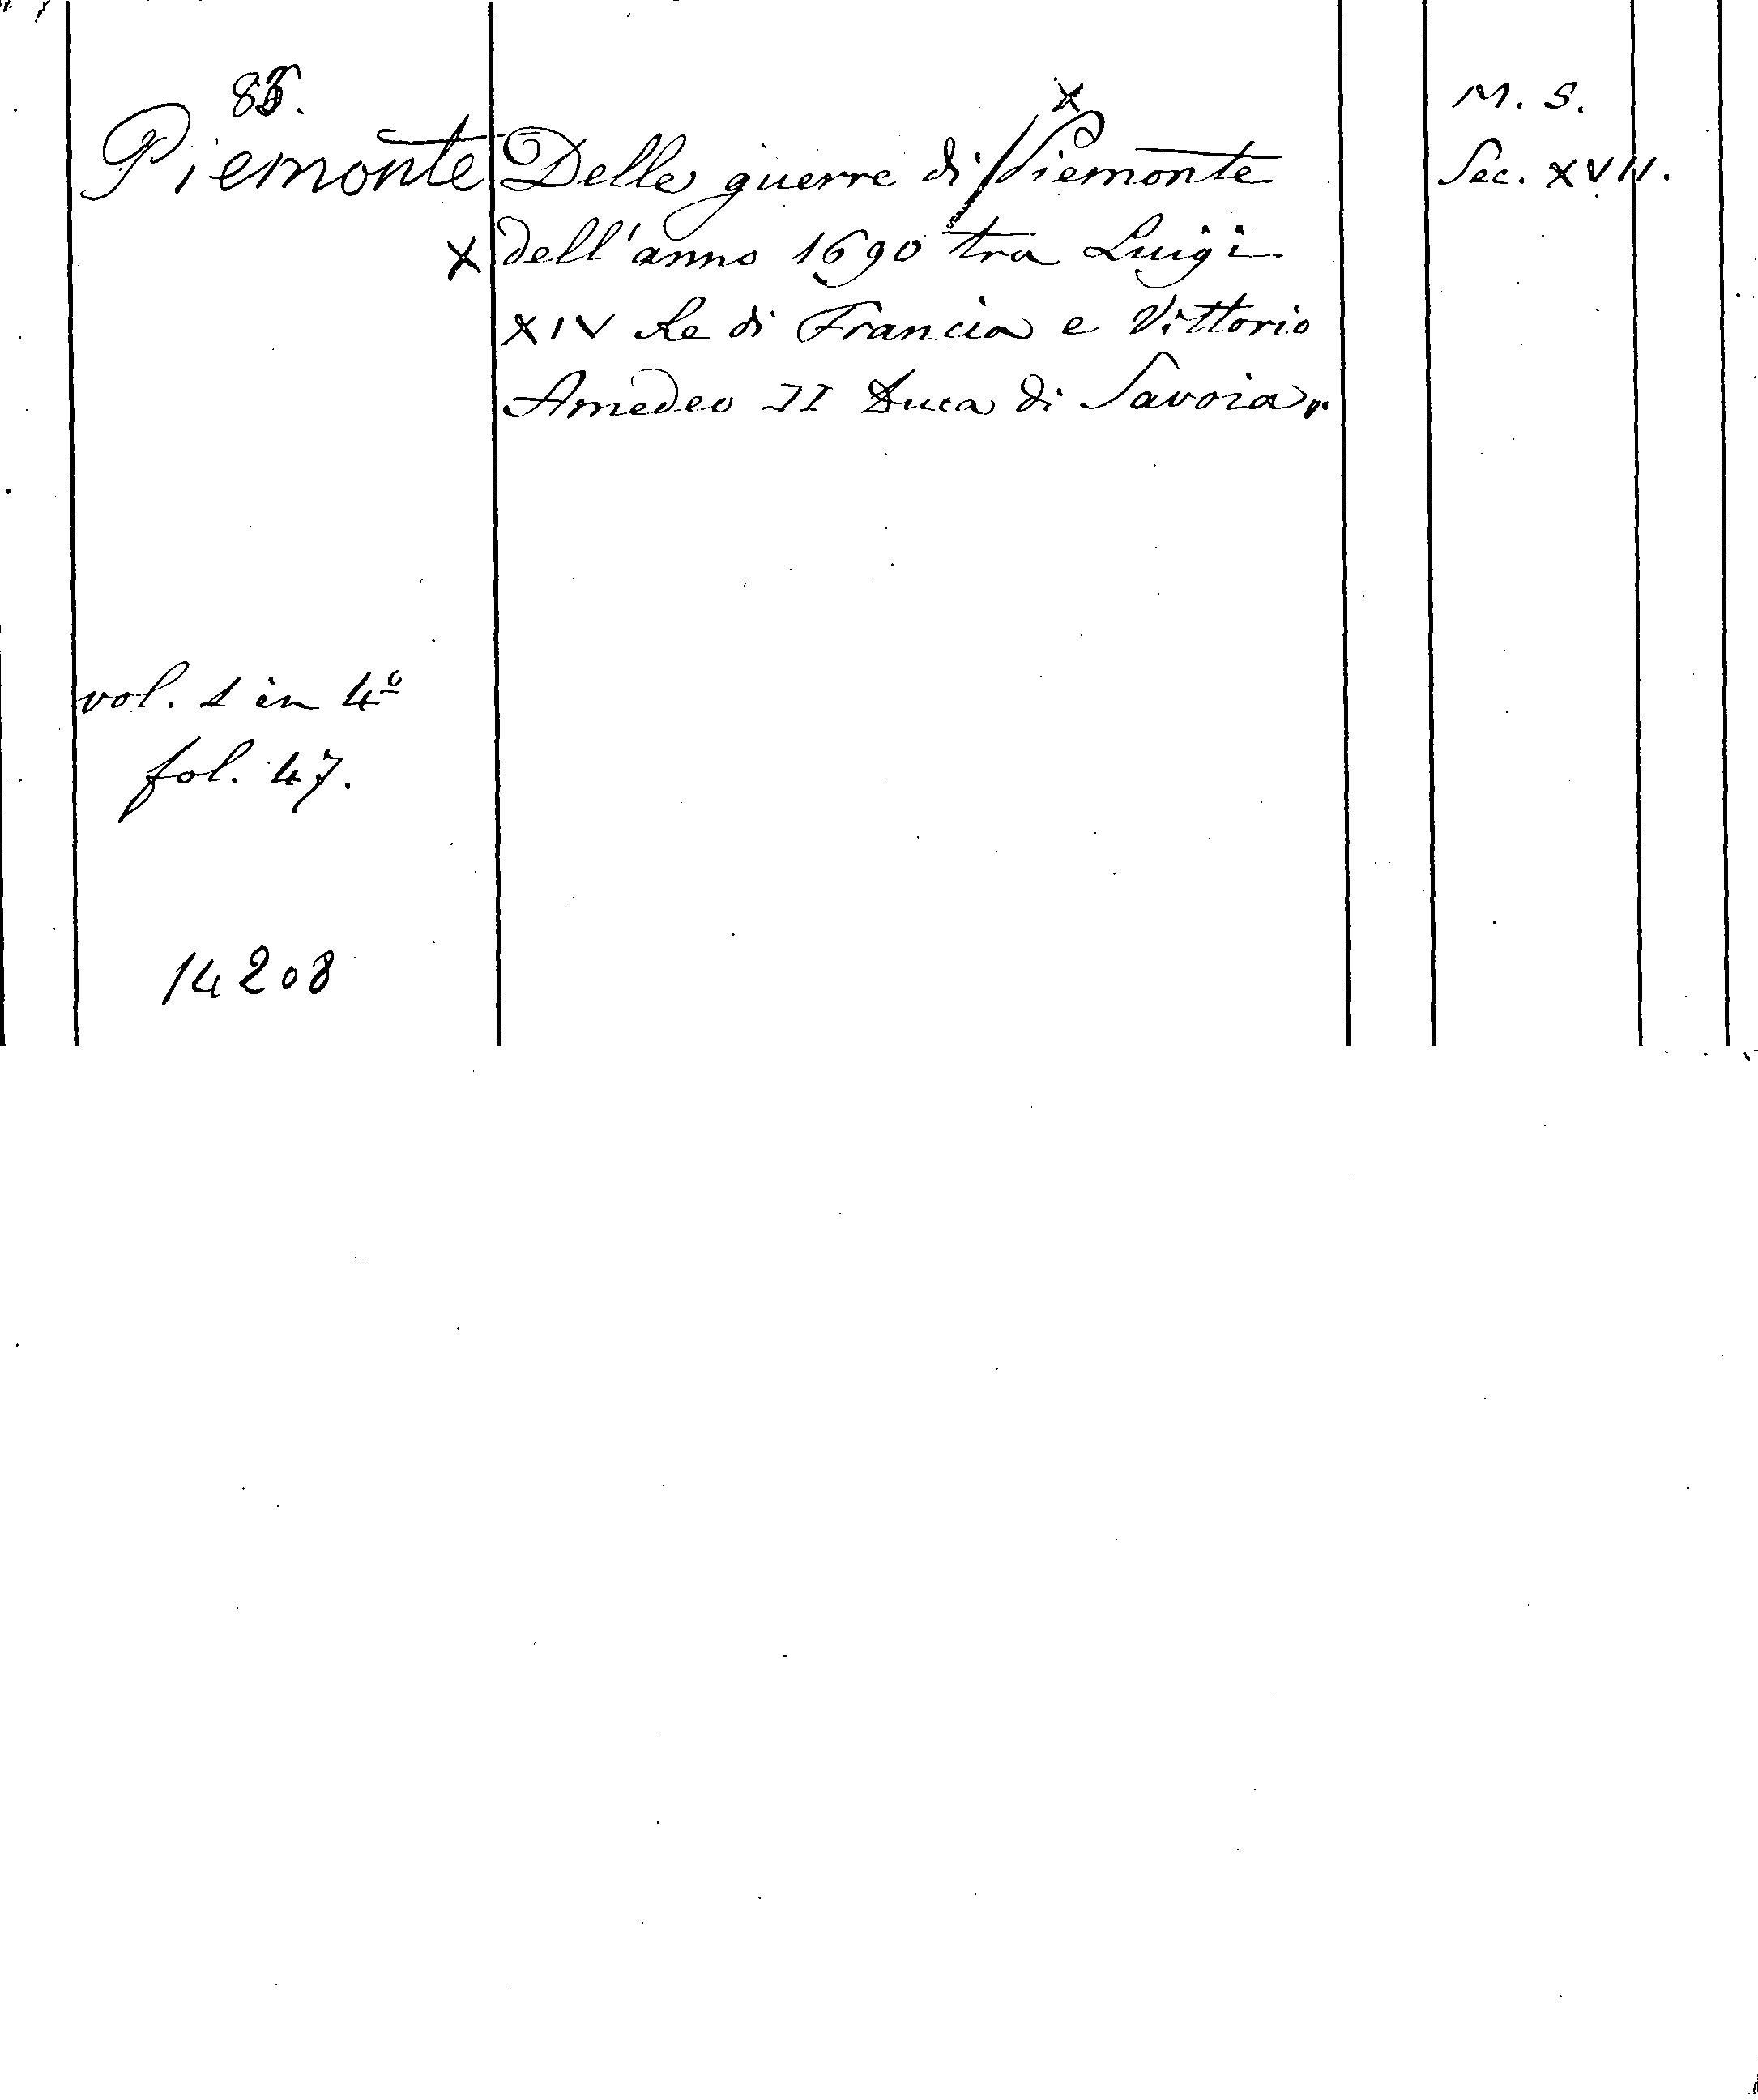 85.
Piemonte
x
vol. 1 in 4º
fol. 47.
14208
x
Delle guerre di Piemonte
dell'anno 1690 tra Luigi
XIV Re di Francia e Vittorio
Amedeo II Duca di Savoia.
M. S.
Sec. XVII.